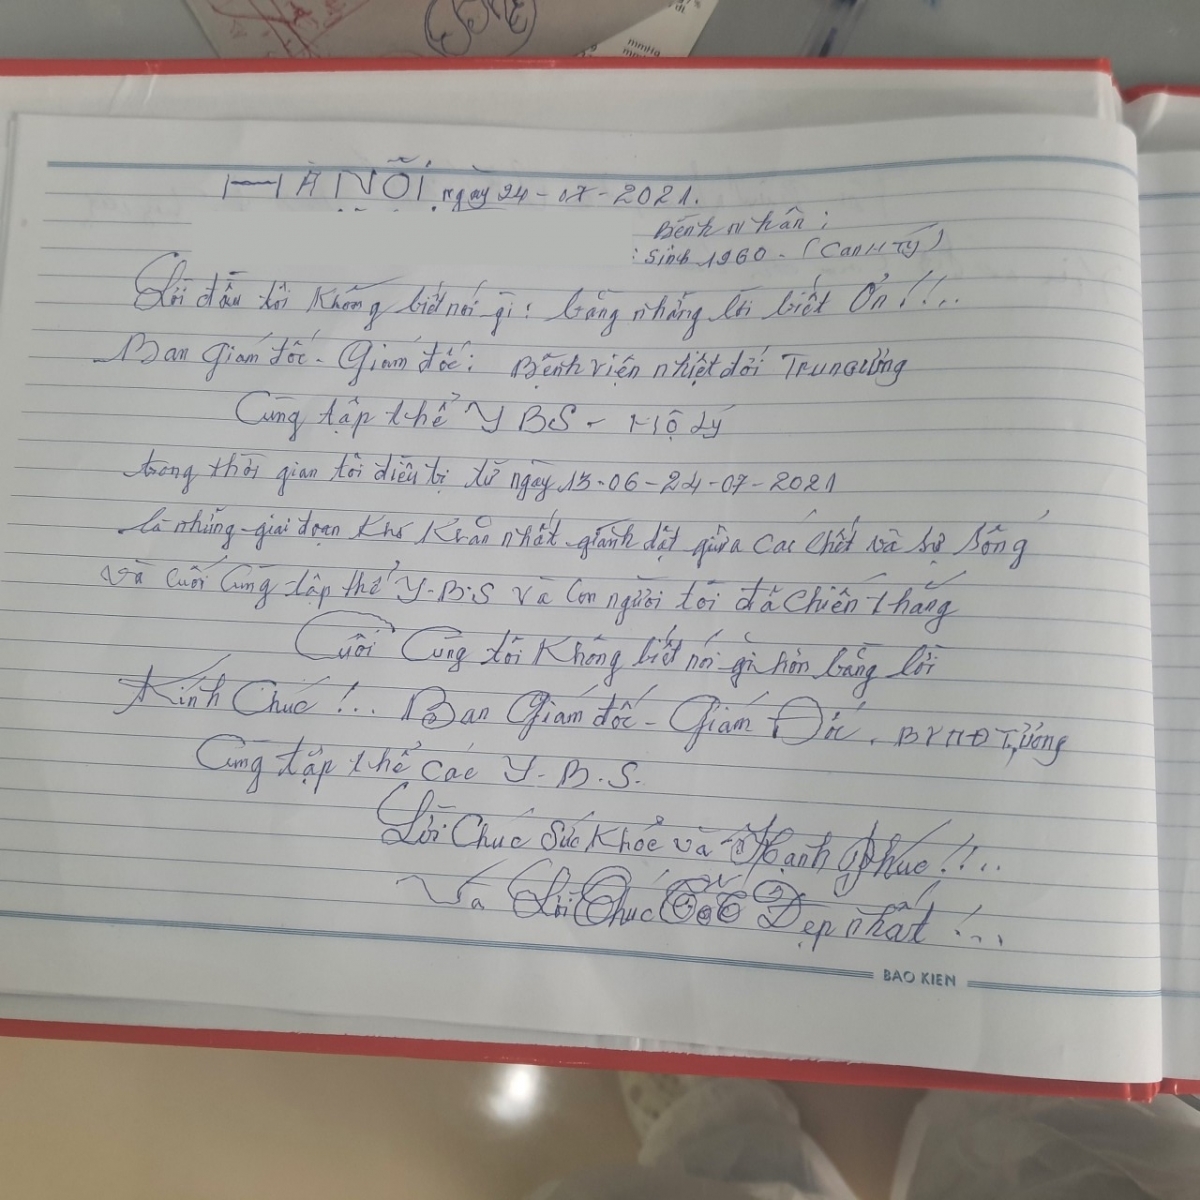 HÀ NỘI, ngày 24-07-2021.
Bệnh Nhân:
: Sinh 1960 - (Canh Tý)
Lời đầu tôi không biết nói gì: bằng nhằng lời biết Ơn!!..
Ban Giám đốc - Giám đốc: Bệnh viện nhiệt đới Trung ương
Cùng tập thể Y BS - Hộ Lý
trong thời gian tôi điều trị từ ngày 13-06-24-07-2021
là những giai đoạn khó khăn nhất giành dật giữa cái chết và sự sống
và cuối cùng tập thể Y.B.S và con người tôi đã chiến thắng
Cuối Cùng tôi không biết nói gì hơn bằng lời
Kính Chúc!... Ban Giám đốc - Giám Đốc. BVNĐ T,ương
Cùng tập thể các Y.B.S.
Lời Chúc Sức khỏe và Hạnh Phúc!!...
Và Lời Chúc Tốt Đẹp nhất!...
BAO KIEN